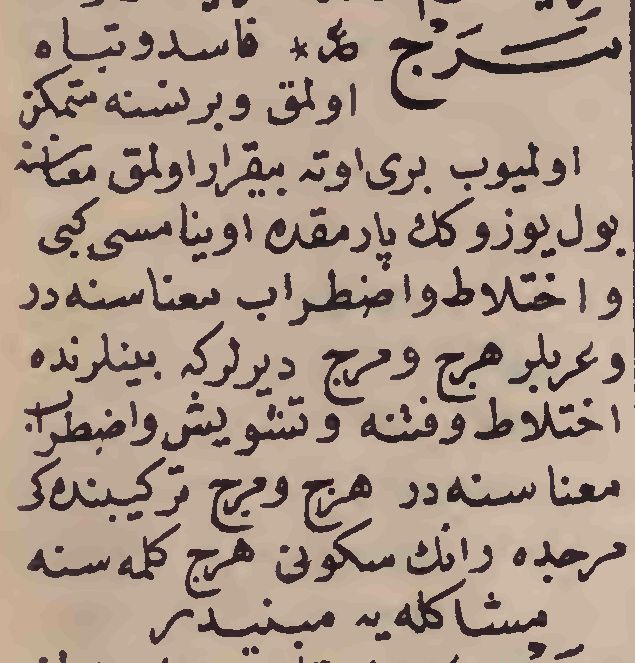 مَرَج * فاسد و تباه
اولمق و بر نسنه متمكن
اولميوب برى اوته بيقرار اولمق معناسنه
بول يوزوكك پارمقده اوينامسى كبى
و اختلاط و اضطراب معناسنه در
و عربلر هرج و مرج ديرلر كه بينلرنده
اختلاط و فتنه و تشويش و اضطراب
معناسنه در هرج و مرج تركيبنده كى
مرجده رانك سكونى هرج كلمه سنه
مشاكله يه مبنيدر